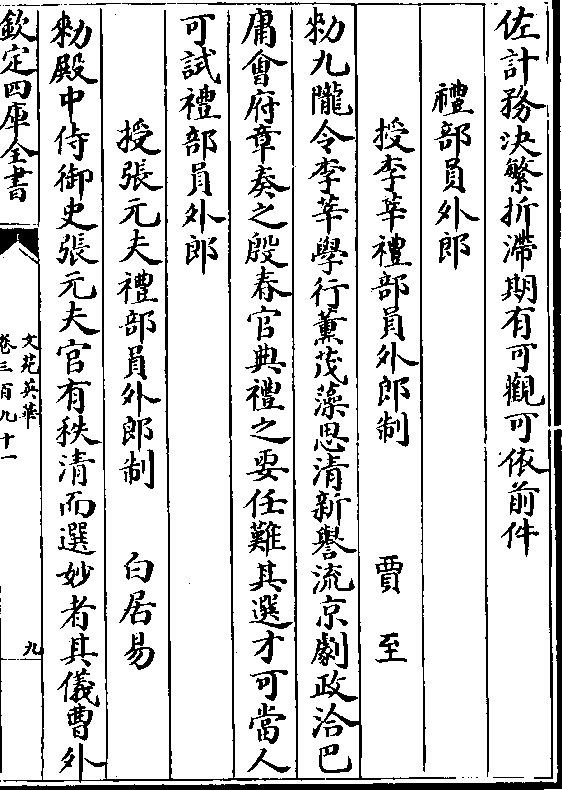 佐計務决繁折滯期有可觀可依前件
禮部員外郎
授李華禮部員外郎制 賈至
勑九隴令李華學行薰茂藻思清新譽流京劇政洽巴
庸會府章奏之殷春官典禮之要任難其選才可當人
可試禮部員外郎
授張元夫禮部員外郎制 白居易
勑殿中侍御史張元夫官有秩清而選妙者其儀曹外
欽定四庫全書
文苑英華
卷三百九十一
九